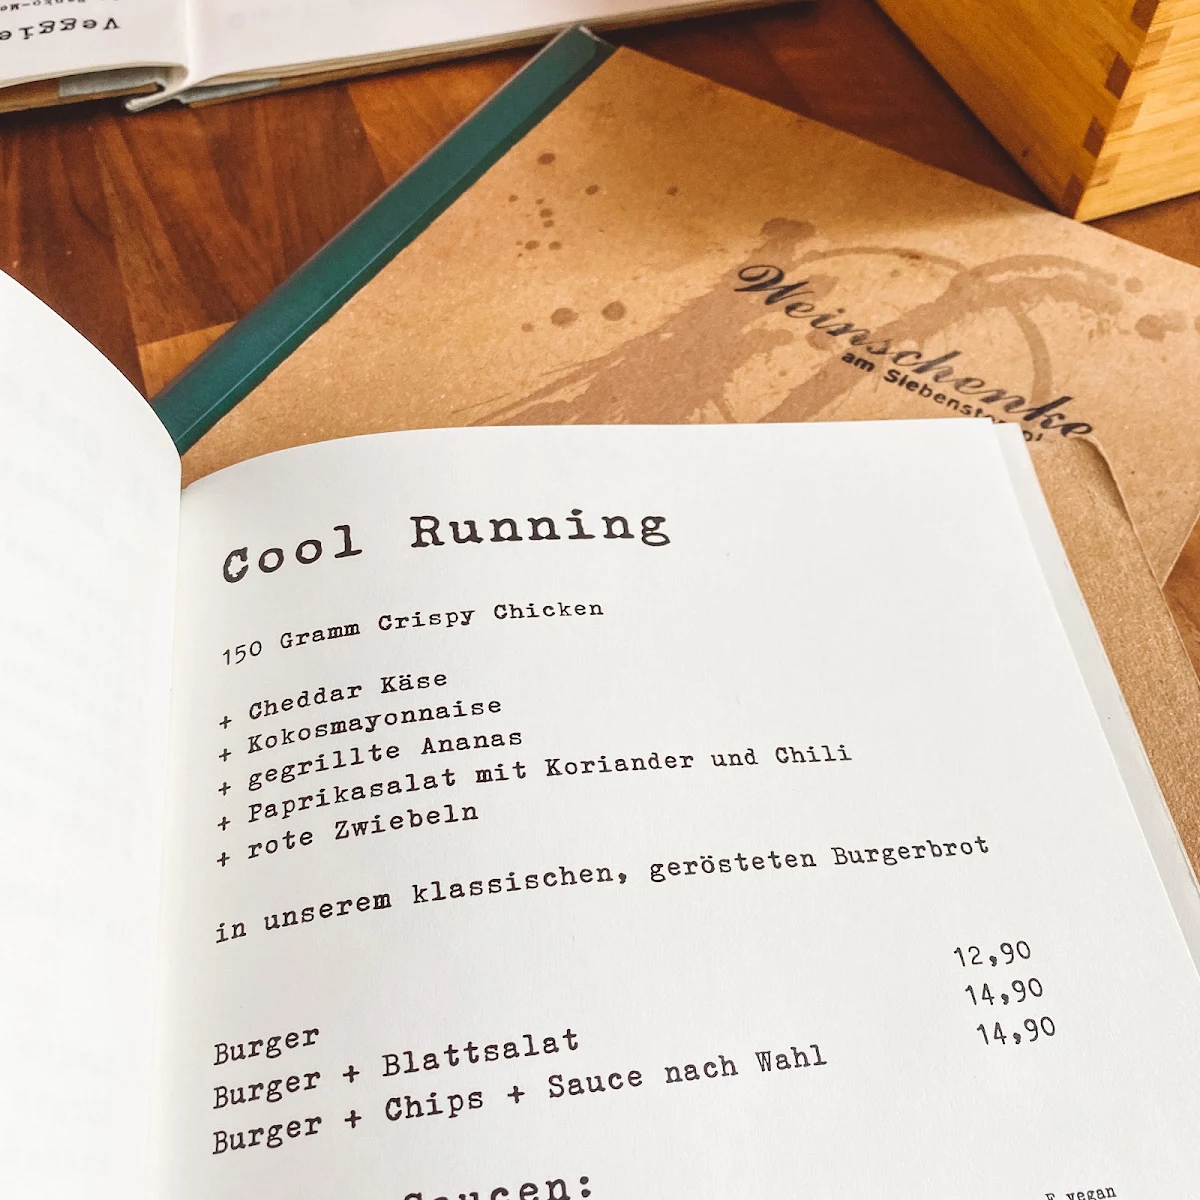 Veggie
Weinschenke
am Siebenste
Cool Running
150 Gramm Crispy Chicken
+ Cheddar Käse
+ Kokosmayonnaise
+ gegrillte Ananas
+ Paprikasalat mit Koriander und Chili
+ rote Zwiebeln
in unserem klassischen, gerösteten Burgerbrot
Burger 12,90
Burger + Blattsalat 14,90
Burger + Chips + Sauce nach Wahl 14,90
Saucen:
vegan